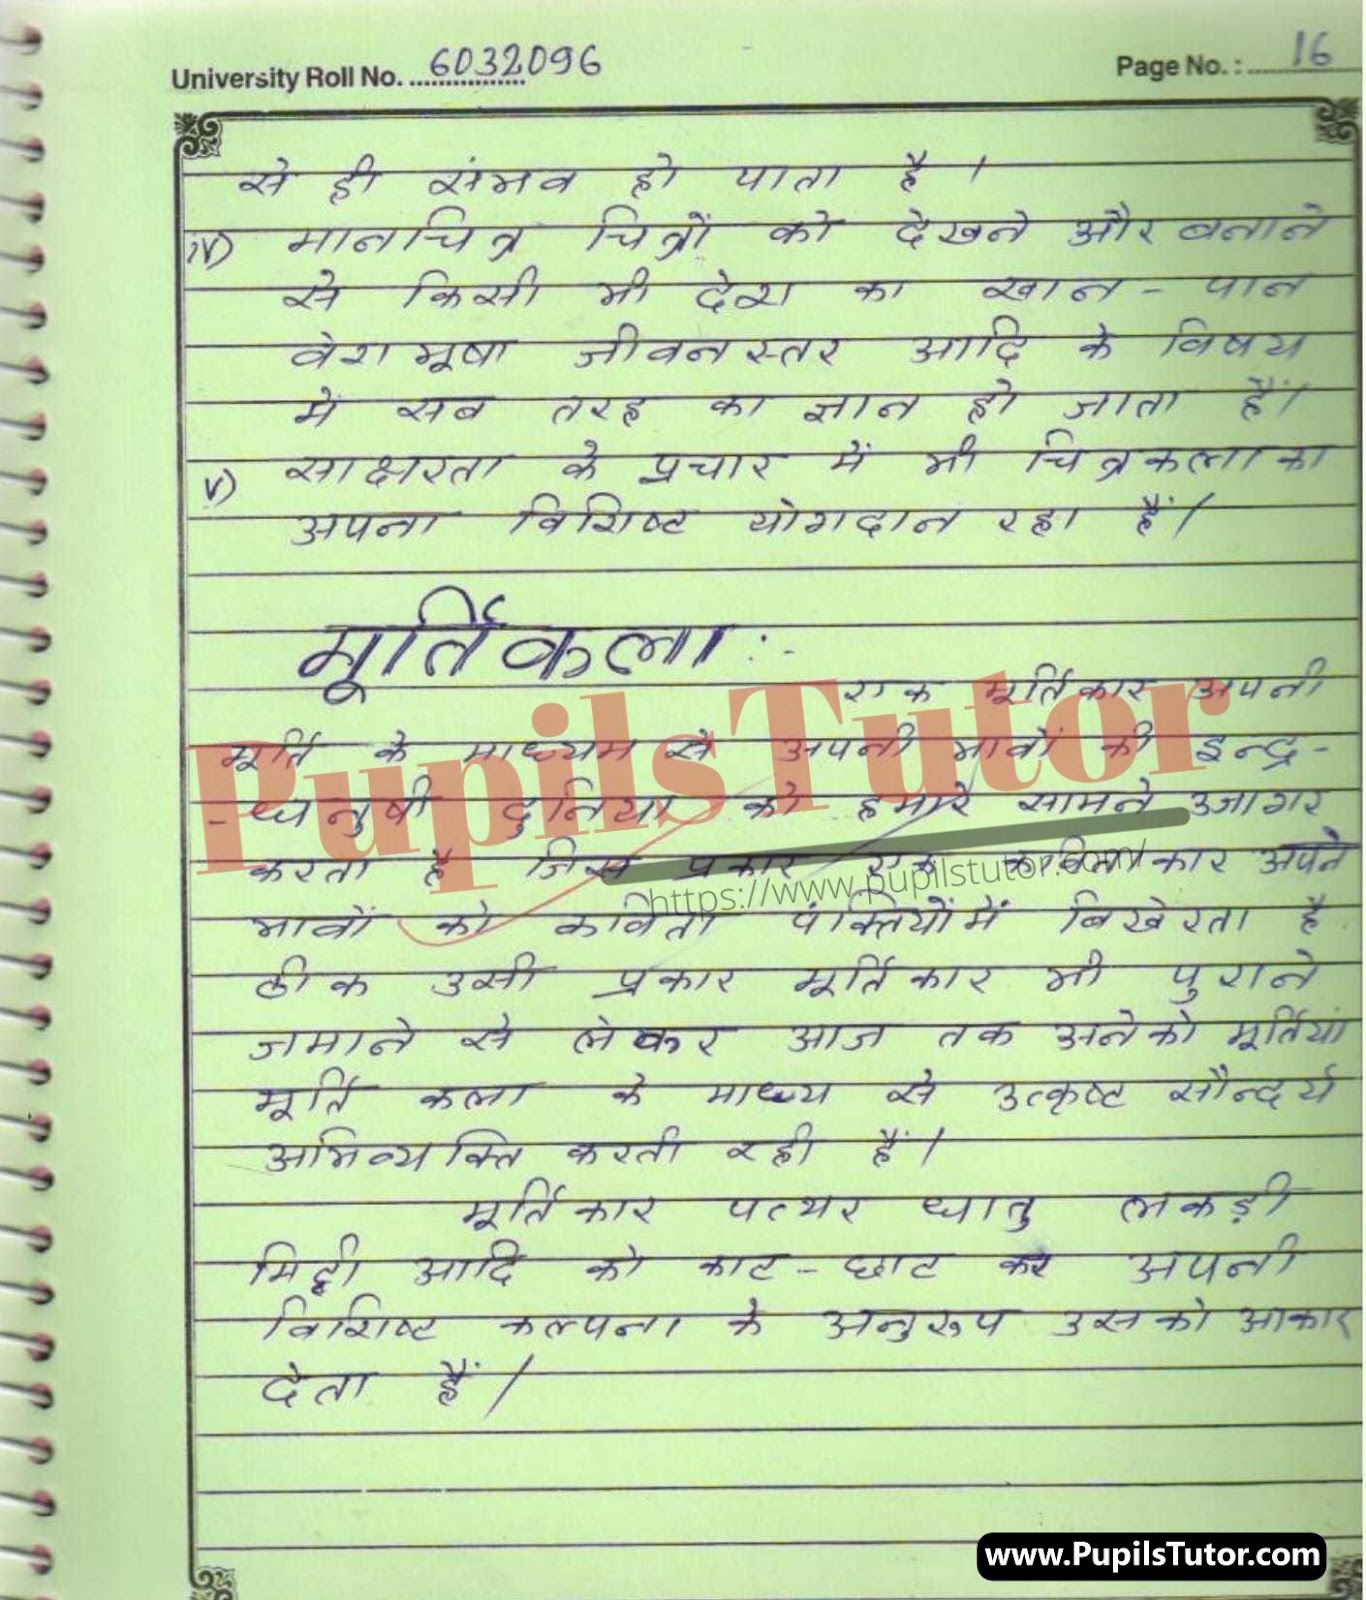 University Roll No. 6032096 Page No. : 16
से ही संभव हो पाता है ।
iv) मानचित्र चित्रों को देखने और बनाने
से किसी भी देश का खान - पान
वेशभूषा जीवनस्तर आदि के विषय
में सब तरह का ज्ञान हो जाता हैं।
v) साक्षरता के प्रचार में भी चित्रकला का
अपना विशिष्ट योगदान रहा हैं।
मूर्तिकला :-
एक मूर्तिकार अपनी
मूर्ति के माध्यम से अपनी भावों की इन्द्र-
-धनुषी दुनिया को हमारे सामने उजागर
करता है जिस प्रकार एक कविताकार अपने
भावों को कविता पंक्तियों में बिखेरता है
ठीक उसी प्रकार मूर्तिकार भी पुराने
जमाने से लेकर आज तक अनेको मूर्तियां
मूर्ति कला के माध्य से उत्कृष्ट सौन्दर्य
अभिव्यक्ति करती रही हैं।
मूर्तिकार पत्थर धातु लकड़ी
मिट्टी आदि को काट - छाट कर अपनी
विशिष्ट कल्पना के अनुरूप उसको आकार
देता हैं।
PupilsTutor
https://www.pupilstutor.com/
www.PupilsTutor.com